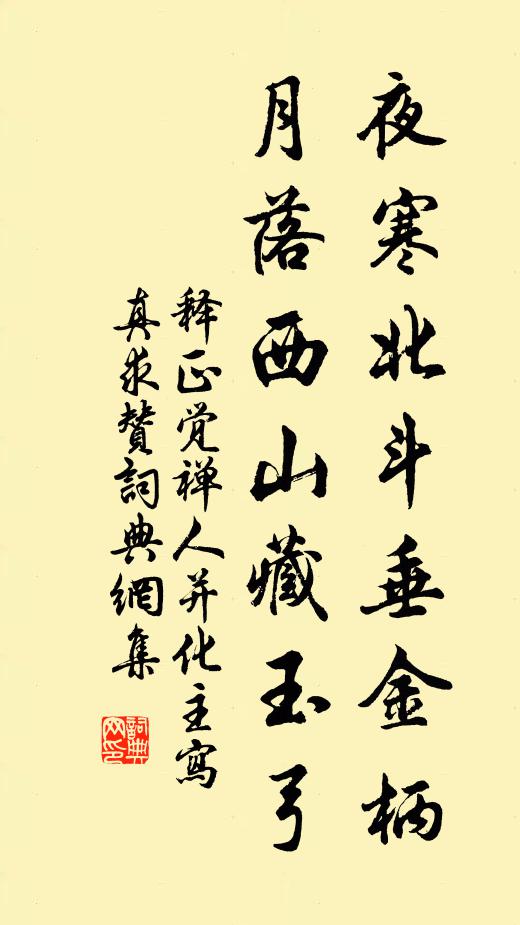 夜寒北斗垂金柄
月落西山藏玉弓
释正觉禅人并化主寫
真求赞詞典網集
詞典網印